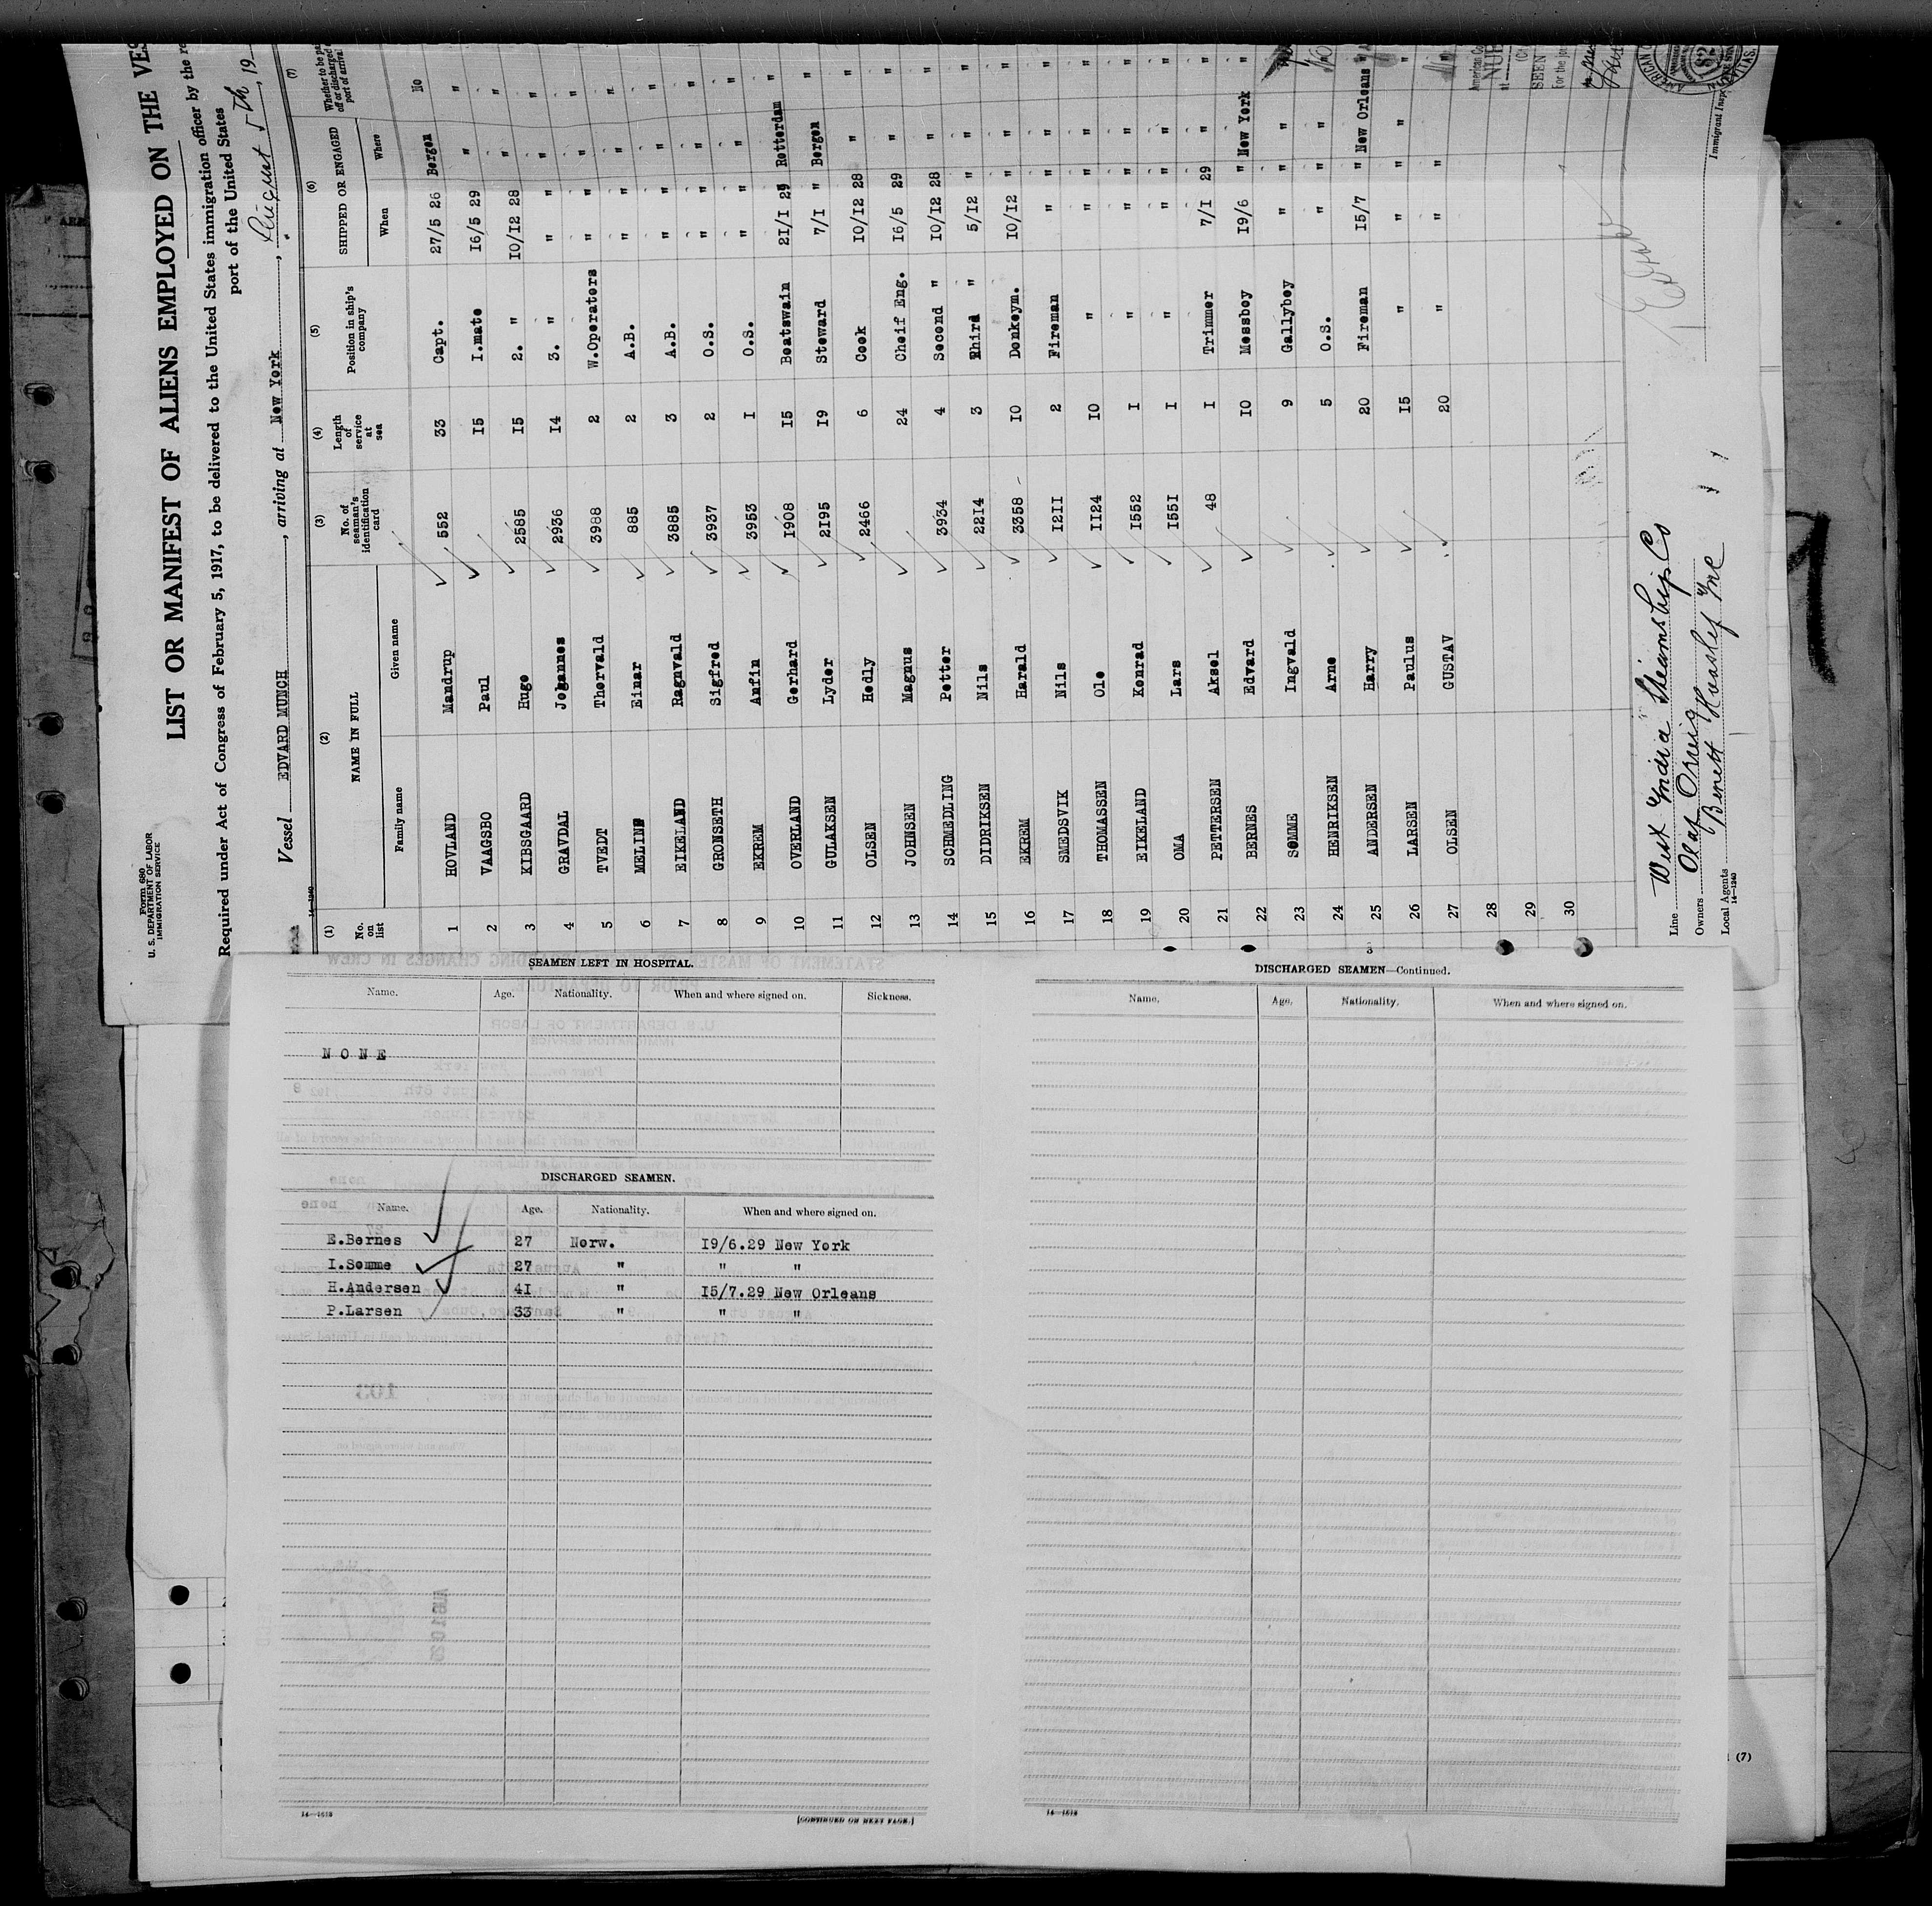 Form 680
U. S. DEPARTMENT OF LABOR
IMMIGRATION SERVICE
LIST OR MANIFEST OF ALIENS EMPLOYED ON THE VES
Required under Act of Congress of February 5, 1917, to be delivered to the United States immigration officer by the re
port of the United States
Vessel EDVARD MUNCH, arriving at New York, August 5th, 19
14—1240
(1) (2) (3) (4) (5) (6) (7)
No. on list NAME IN FULL No. of seaman's identification card Length of service at sea Position in ship's company SHIPPED OR ENGAGED Whether to be pa off or discharged port of arrival
Family name Given name When Where
1 HOVLAND Mandrup 552 33 Capt. 27/5 26 Bergen No
2 VAAGSBO Paul 15 I.mate 16/5 29 " "
3 KIBSGAARD Hugo 2585 15 2. " 10/12 28 " "
4 GRAVDAL Johannes 2936 14 3. " " " " "
5 TVEDT Thorvald 3988 2 W.Operaters " " " "
6 MELING Einar 885 2 A.B. " " " "
7 EIKELAND Ragnvald 3885 3 A.B. " " " "
8 GRONSETH Sigfred 3937 2 O.S. " " " "
9 EKREM Anfin 3953 I O.S. " " " "
10 OVERLAND Gerhard 1908 15 Boatswain 21/I 29 Rotterdam "
11 GULAKSEN Lyder 2195 19 Steward 7/I " Bergen "
12 OLSEN Hedly 2466 6 Cook 10/12 28 " "
13 JOHNSEN Magnus 24 Cheif Eng. 16/5 29 " "
14 SCHMEDLING Petter 3934 4 Second " 10/12 28 " "
15 DIDRIKSEN Nils 2214 3 Third " 5/12 " " "
16 EKREM Harald 3358 10 Donkeym. 10/12 " " "
17 SMEDSVIK Nils 1211 2 Fireman " " " "
18 THOMASSEN Ole 1124 10 " " " " "
19 EIKELAND Konrad 1552 I " " " " "
20 OMA Lars 1551 I " " " " "
21 PETTERSEN Aksel 48 I Trimmer 7/I 29 " "
22 BERNES Edvard 10 Messboy 19/6 " New York "
23 SOMME Ingvald 9 Gallyboy " " "
24 HENRIKSEN Arne 5 O.S. " " "
25 ANDERSEN Harry 20 Fireman 15/7 " New Orleans "
26 LARSEN Paulus 15 " " " " "
27 OLSEN GUSTAV 20 " " "
28
29
30
Line West India Steamship Co
Owners Olaf Orreig
Local Agents Benett Hvasley Inc
14—1240
Immigrant Inspe
American Co
at
SEEN
For the jo
SEAMEN LEFT IN HOSPITAL.
Name. Age. Nationality. When and where signed on. Sickness.
NONE
DISCHARGED SEAMEN.
Name. Age. Nationality. When and where signed on.
E.Bernes 27 Norw. 19/6.29 New York
I.Somme 27 " " "
H.Andersen 41 " 15/7.29 New Orleans
P.Larsen 33 " " "
14—1618
[CONTINUED ON NEXT PAGE.]
DISCHARGED SEAMEN—Continued.
Name. Age. Nationality. When and where signed on.
14—1618
(7)